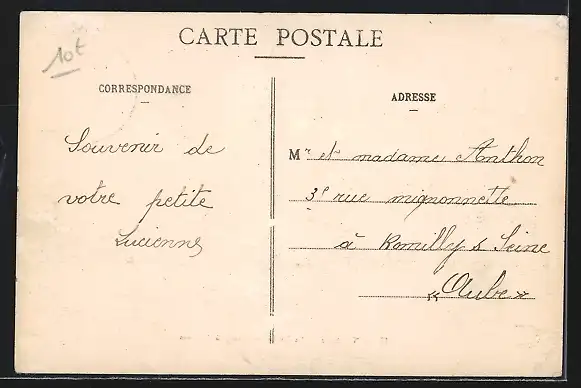 10t
CARTE POSTALE
CORRESPONDANCE
ADRESSE
Souvenir de
votre petite
Lucienne
Mr et madame Anthon
3e rue mignonnette
à Romilly s Seine
«Aube»